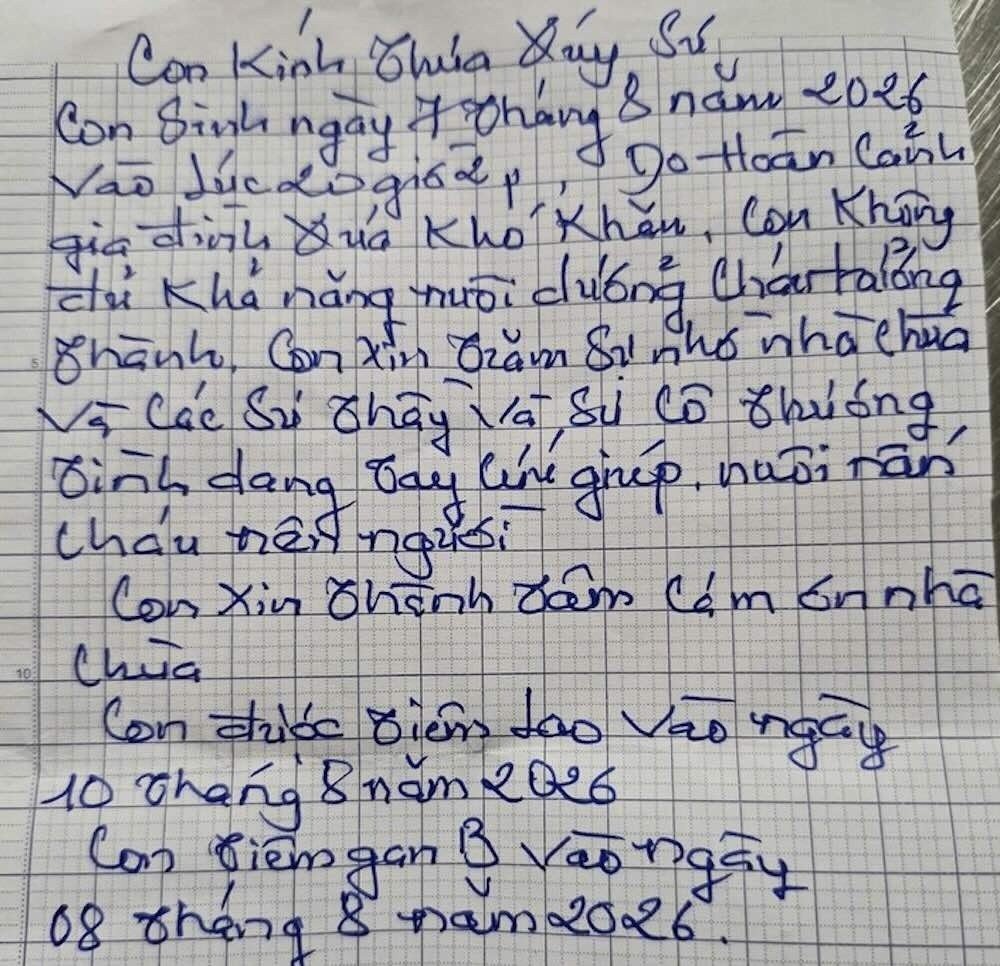 Con Kính Thưa Quý Sư
Con Sinh ngày 7 tháng 8 năm 2026
Vào lúc 20 giờ 2p, Do Hoàn Cảnh
gia đình Quá Khó Khăn, Con Không
đủ Khả năng nuôi dưỡng Cháu trưởng
thành, Con xin Trăm Sự nhờ nhà chùa
và Các Sư thầy Và Sư Cô thương
tình dang tay Cứu giúp, nuôi nấn
Cháu nên người
Con xin thành tâm Cám ơn nhà
Chùa
Con được tiêm lao Vào ngày
10 tháng 8 năm 2026
Con tiêm gan B Vào ngày
08 tháng 8 năm 2026.
5
10